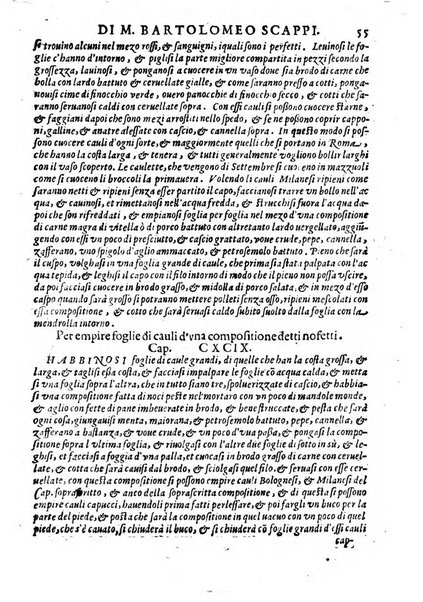 DI M. BARTOLOMEO SCAPPI. 55
si trouino alcuni nel mezo rossi, & sanguigni, iquali sono i perfetti. Leuinosi le fo-
glie c'hanno d'intorno, & pigli si la parte migliore compartita in pezzi secondo la
grossezza, lauinosi, & ponganosi a cuocere in vn vaso doue sia brodo di carne che
bolla con lardo battuto & ceruellate gialle, & come sarà presso a cottura, ponganouisi
cime di finocchio verde, ouero panche di finocchio secco, & cotta che
saranno seruanosi caldi con ceruellate sopra. Con essi cauli si possono cuocere starne,
& faggiani dapoi che sono mezi arrostiti nello spedo, & se ne possono coprir cappo
ni, galline, & anatre alessate con cascio, & cannella sopra. In questo modo si pos-
sono cuocere d'ogni sorte, & maggiormente quelli che si trouano in Roma,
che hanno la costa larga, & tenera, & tutti generalmente vogliono bollir larghi
con il vaso scoperto. Le caulette, che vengono di Settembre si cuoceno in mazzuoli
come si cuoceno li broccoli la primauera. Volendo li cauli Milanesi ripieni come
saranno netti & ripieni senza esser partito il capo, faccianosi trarre vn bollo nell'ac
qua, & cauinosi, et rimettanosi nell'acqua fredda, & strucchisi fuora l'acqua da
poi che son rifreddati, & empianosi foglia per foglia nel mezo d'vna compositione
di carne magra di vitella ò di porco battuto con altretanto lardo vergellato, aggiun-
gendo con essa vn poco di presciutto, & cascio grattato, voue crude, pepe, cannella,
zafferano, vno spigolo d'aglio ammaccato, & petrosemolo battuto. Pieno che sarà
il cauolo, volgasi in vna foglia grande di caule, che prima sia stata psalmata in ac-
qua tepida, & leghisi il capo con il filo intorno di modo che il pieno non possa vscire,
da poi facciasi cuocere in brodo grasso, & mictasi di modo che non patisca, & in mezo d'esso
cappo quando sarà grosso si potranno mettere polletti senza ossa, ripieni mescolati con
essa compositione, & cotto che sarà seruasi caldo subito dalla sua foglia con la
mendrolla intorno.
Per empire foglie di cauli d'vna compositione detti nosetti.
Cap. CXCIX.
HABBINOSI foglie di caule grandi, di quelle che han la costa grossa, &
larga, & taglisi essa costa, & facciasi impalpare le foglie cō acqua calda, & metta
si vna foglia sopra l'altra, che in tutto siano tre, spoluerizzate di cascio, & habbia-
si vna compositione fatta di noci peste nel mortaro con vn poco di mandole monde,
& aglio con fette di pane imbeuerate in brodo, & benestruccate, & pesta che sarà
ogni cosa, giungauisi menta, maiorana, & petrosemolo battuto, pepe, cannella, &
zafferano a bastanza, & voue crude, & vn poco d'vua passa, & pongasi la compo-
sitione sopra l'vltima foglia, & riuolgasi con l'altre due foglie di sotto in sù, & le-
ghisi, et facciasi a foggia d'vna palla, et cuocanosi in brodo grasso di carne ò d'altro
brodo, & cotta che sarà cauisi dal brodo, & sciolgasi quel filo, & seruasi con esse cer-
uellate, con questa compositione si possono empire cauli Bolognesi, & Milanesi del
Cap. soprascritto, & anco della soprascritta compositione, & di questa si possono
empire cauli capucci, hauendoli prima fatti perlessare, & poi farai vn buco per la
parte del piede, & posta che sarà la compositione in quel vacuo con vn poco di quel
piede, che s'è cauato, si chiuderà il buco, & si chiuderà cō foglie grandi d'essi cauli
cap-